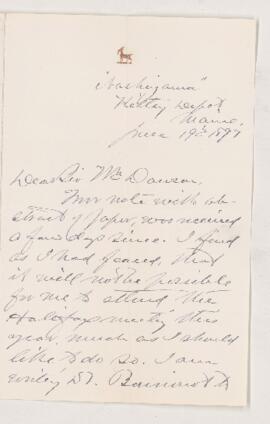 "Nashigama"
Kittery Depot
Maine
June 19th 1897
Dear Sir Wm Dawson,
Your note with ab-
stract of paper, was received
a few days since. I find
as I had feared, that
it will not be possible
for me to attend the
Halifax meeting this
year, much as I should
like to do so. I am
writing Dr.